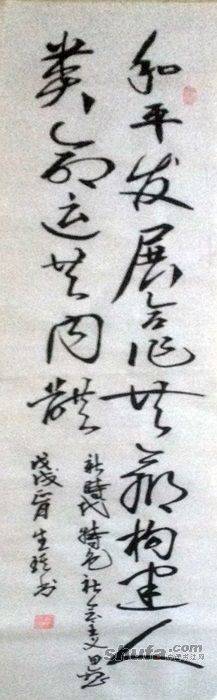 和平发展合作共赢构建人
类命运共同体
新时代特色社会主义思想
戊戌年首月生於书
shufa.com